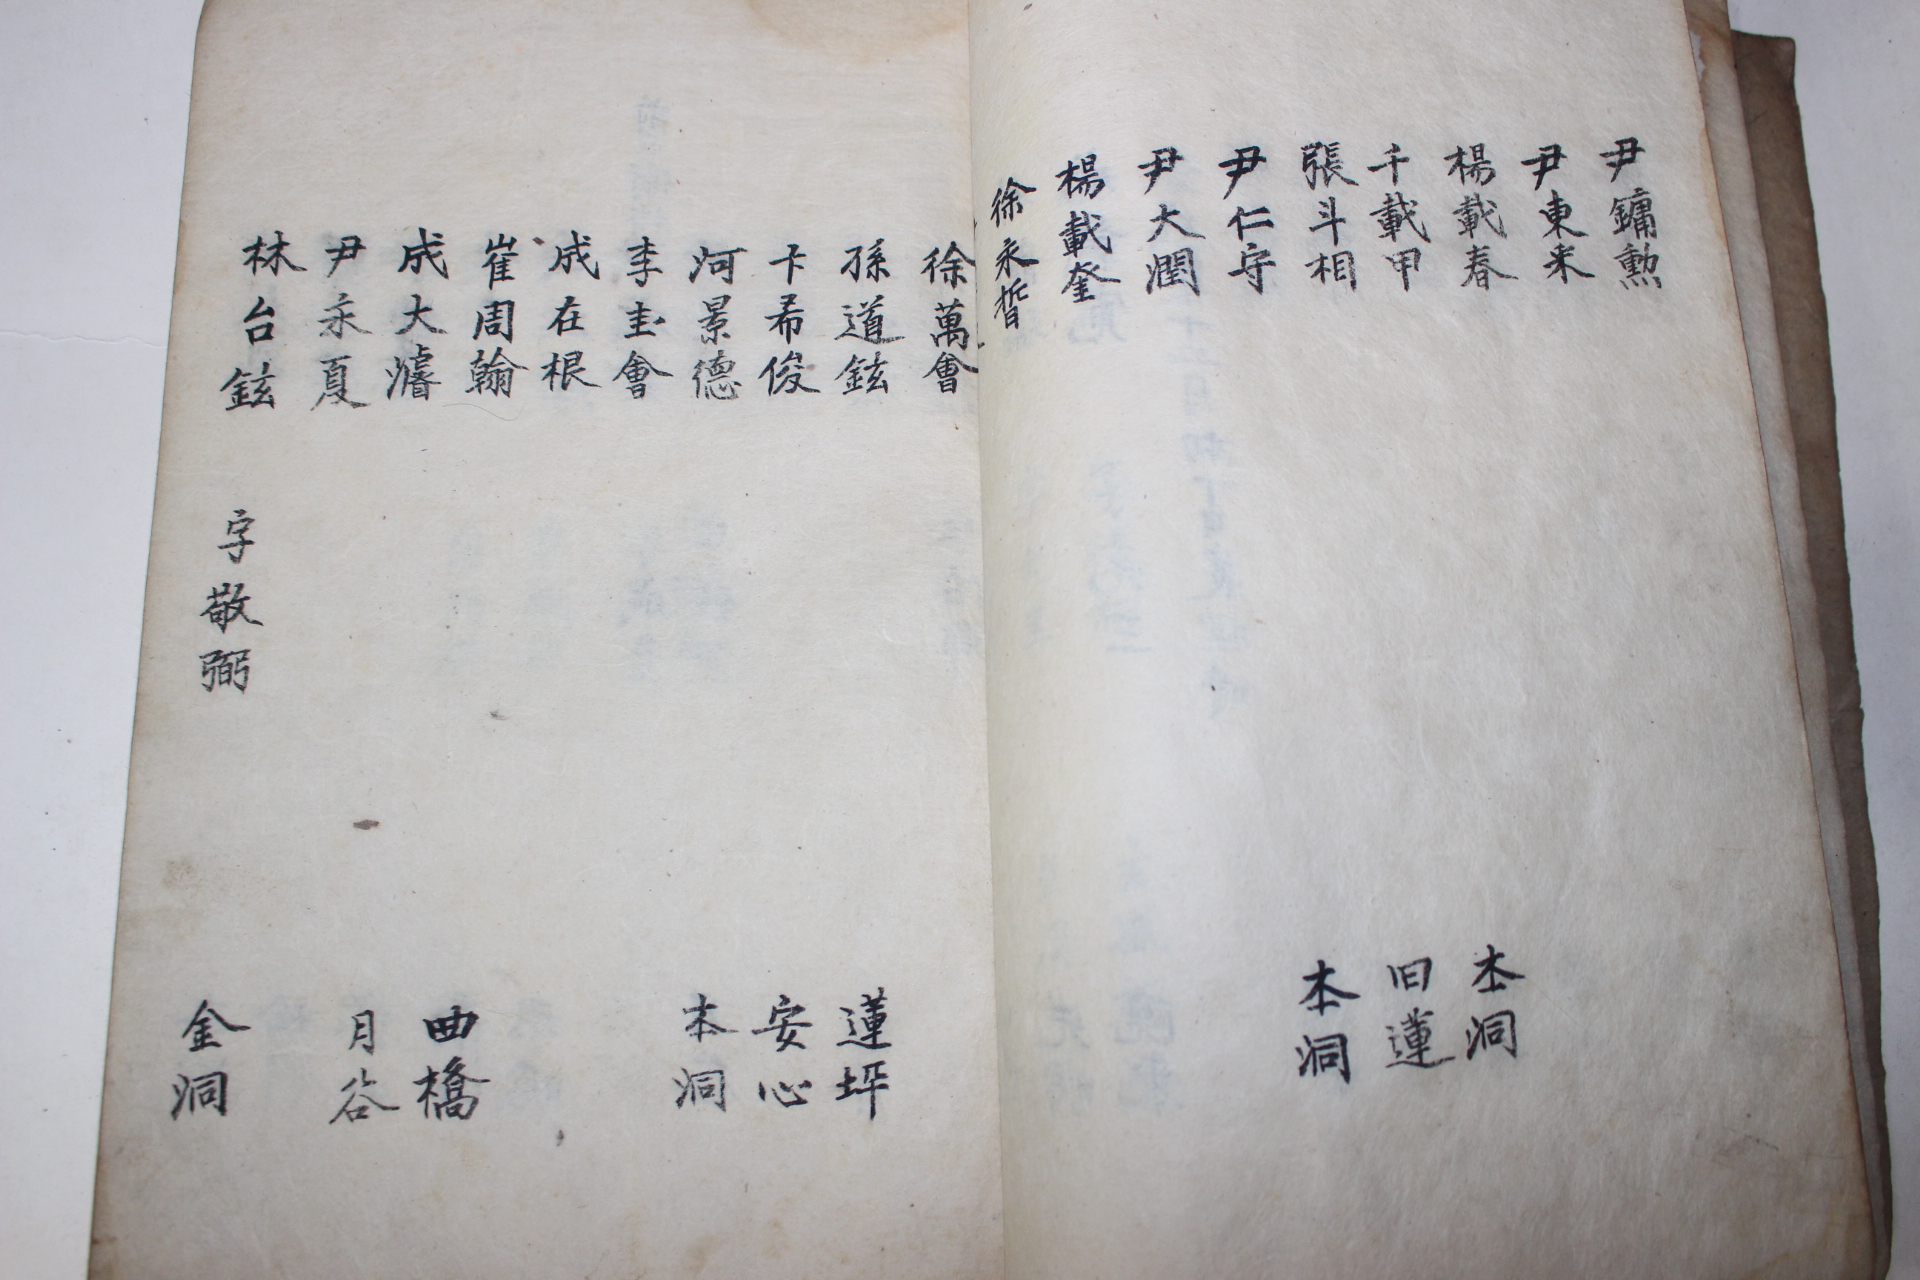 尹鏞勲
尹東来
楊載春 本洞
千載甲 旧蓮
張斗相 本洞
尹仁守
尹大潤
楊載奎
徐永晢
徐萬會
孫道鉉 蓮坪
卞希俊 安心
河景德 本洞
李圭會
成在根
崔周翰
成大濬 曲橋
尹永夏 月谷
林台鉉 字敬弼 金洞